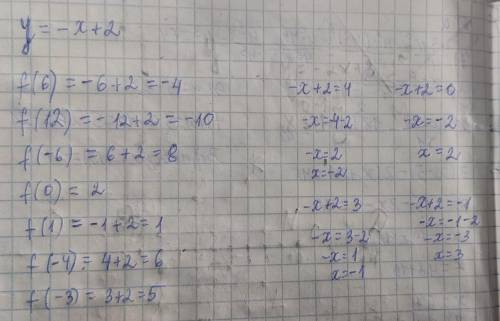 y = -x+2
f(6) = -6+2 = -4
f(12) = -12+2 = -10
f(-6) = 6+2 = 8
f(0) = 2
f(1) = -1+2 = 1
f(-4) = 4+2 = 6
f(-3) = 3+2 = 5
-x+2=4
-x=4-2
-x=2
x=-2
-x+2=0
-x=-2
x=2
-x+2=3
-x=3-2
-x=1
x=-1
-x+2=-1
-x=-1-2
-x=-3
x=3